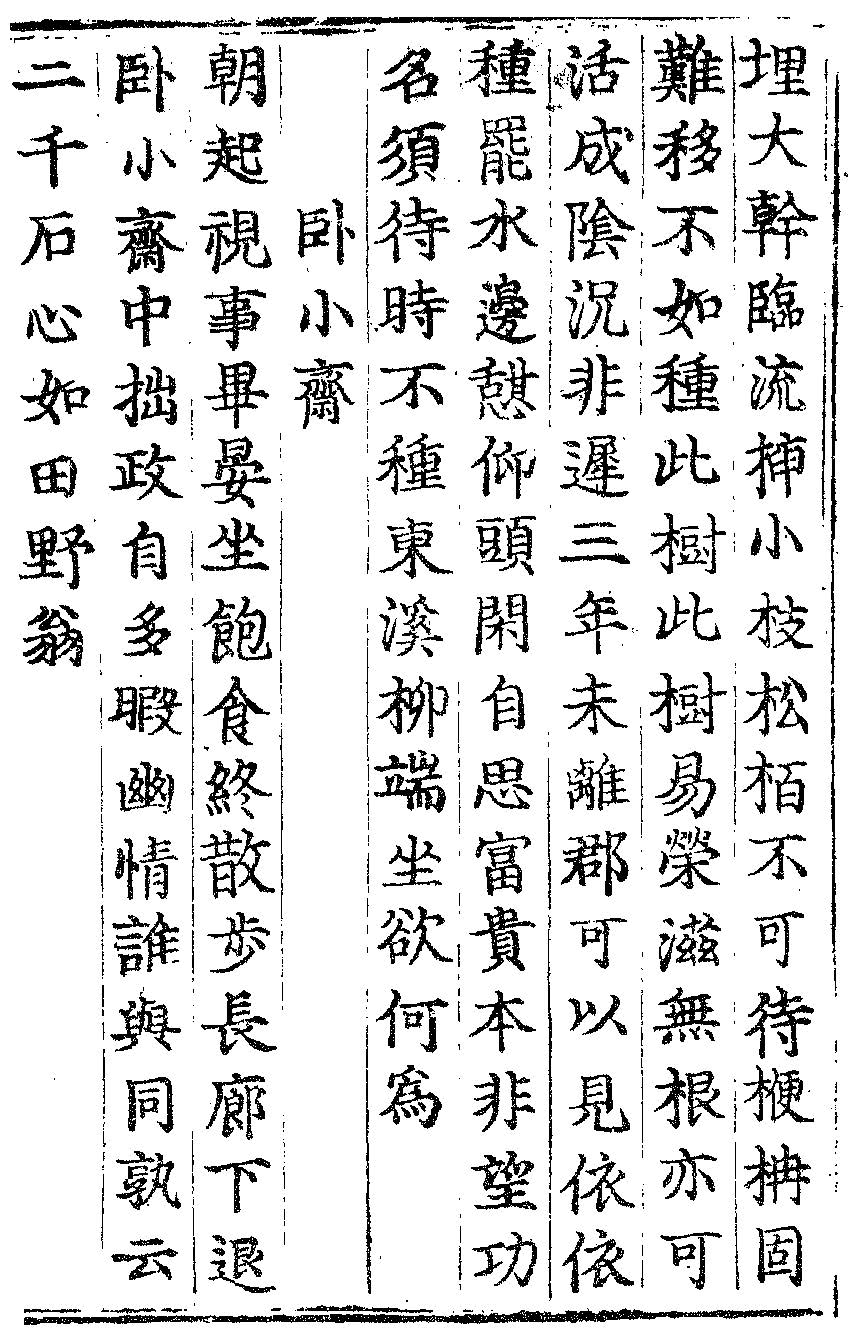 埋大幹臨流揷小枝松栢不可待楩柟固
難移不如種此樹此樹易榮滋無根亦可
活成陰況非遲三年未離郡可以見依依
種罷水邊憇仰頭閑自思富貴本非望功
名須待時不種東溪柳端坐欲何爲
卧小齋
朝起視事畢晏坐飽食終散步長廊下退
卧小齋中拙政自多暇幽情誰與同孰云
二千石心如田野翁